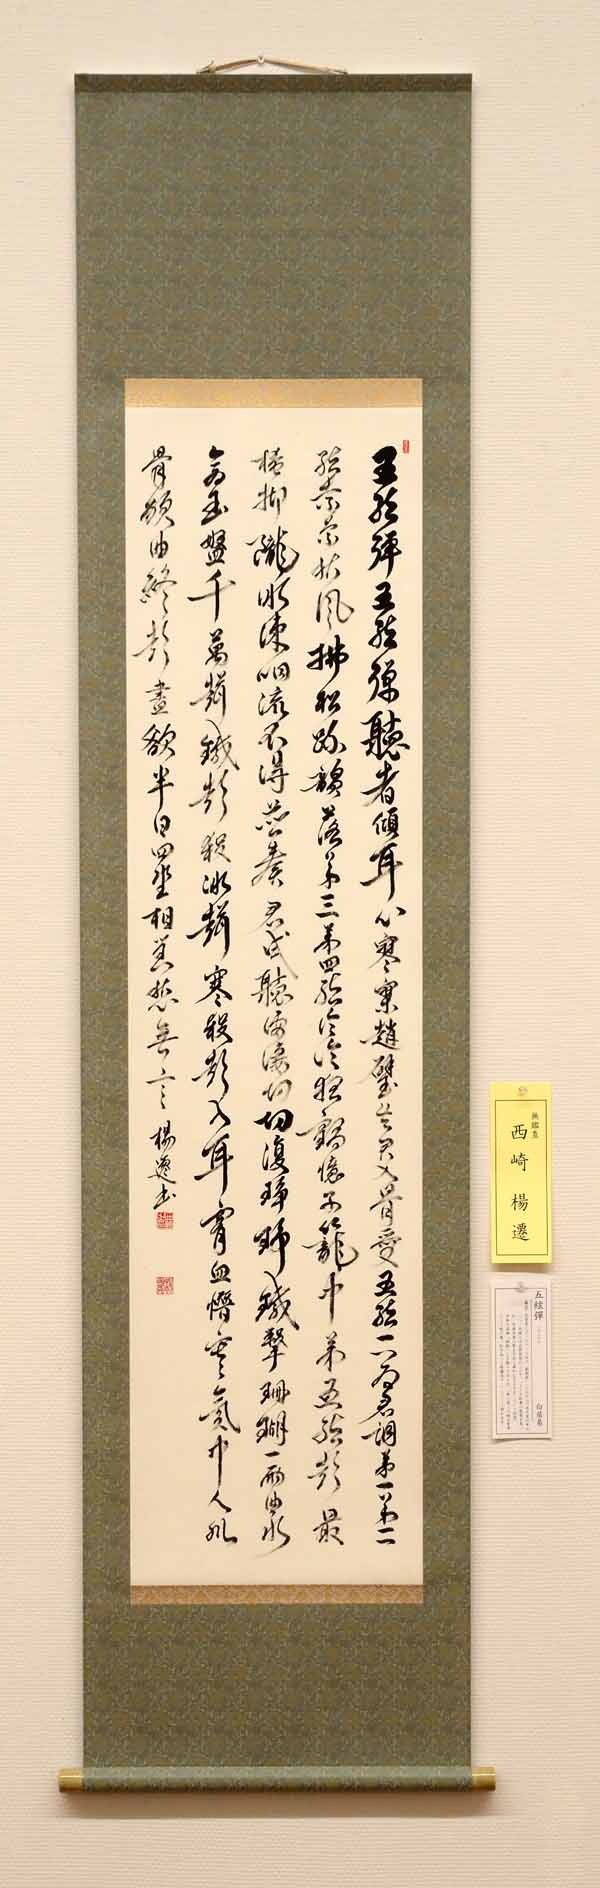 五絃彈五絃彈聽者傾耳心寥寥趙璧知君入骨愛五絃一一為君調第一第二
絃索索秋風拂松踈韻落第三第四絃泠泠夜鶴憶子籠中第五絃聲最
掩抑隴水凍咽流不得並奏君試聽凄凄切切復錚錚鐵擊珊瑚一兩曲氷
寫玉盤千萬聲鐵聲殺氷聲寒殺聲入耳膚血憯寒氣中人肌
骨酸曲終聲盡欲半日四坐相對愁無言 楊遷書
無鑑査
西崎 楊遷
五絃彈
白居易